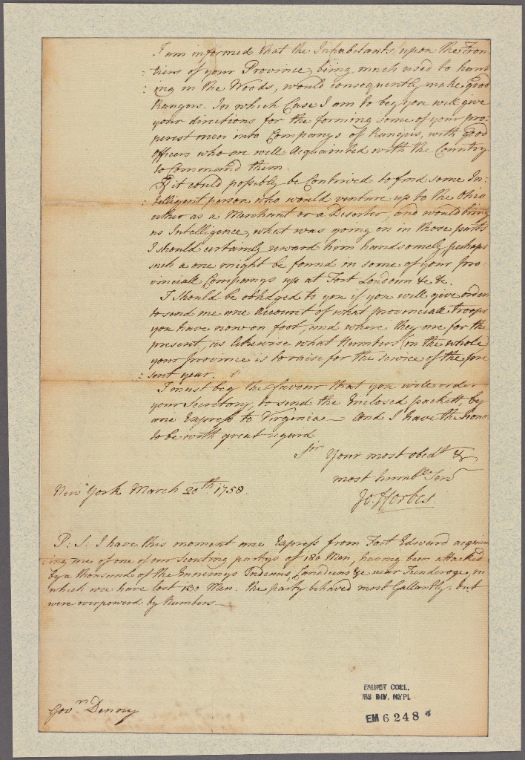 I am informed that the Inhabitants upon the Fron-
: tiers of your Province, being much used to hunt
: ing in the Woods, would consequently make good
Rangers. In which Case I am to beg you will give
your directions for the forming some of your pro
: perest men into Companys of Rangers, with good
Officers who are well Acquainted with the Country
to Command them.
If it could possibly be Contrived to find some In-
: telligent person who would venture up to the Ohio
either as a Merchant or a Deserter, and would bring
us Intelligence, what was going on in those parts
I should certainly reward him handsomely, perhaps
such a one might be found in some of your pro
vinciall Companys up at Fort Loudoun &c &c.
I should be obliedged to you if you will give orders
to send me one account of what provinciall troops
you have now on foot, and where they are for the
present, as likewise what Numbers in the whole
your province is to raise for the Service of the pre
: sent year.
I must beg the favour that you will order
your Secretary to send the Enclosed packett by
one Express to Virginia — And I have the honr
to be with great regard
Sir Your most obedt &
most humble Servt
Jo: Forbes
New York March 20th 1758.
P. S. I have this moment one Express from Fort Edward acquain
ing me of one of our Scouting partys of 180 Men, having been attacked
by a thousand of the Ennemys Indians, Canadians &c near Tienderoge, in
which we have lost 130 Men. the party behaved most Gallantly. but
were overpowered by Numbers —
Govrn Denny
EMMET COLL.
MS DIV. NYPL
EM 6248